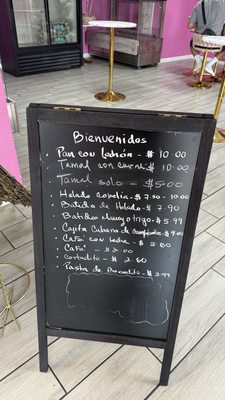 Bienvenidos
. Pan con lechón - $ 10.00
Tamal con - $ 10.00
Tamal solo - $5.00
. Helado copelia - $7.50 - 10.00
. Batido de Helado - $ 7.90
. Batidos Mamey o trigo - $ 5.99
. Cajita Cubana de - $ 9.00
. Café con leche - $ 3.80
. Café - $ 2.00
. Cortadito - $ 2.60
. Pasta de - $ 3.99